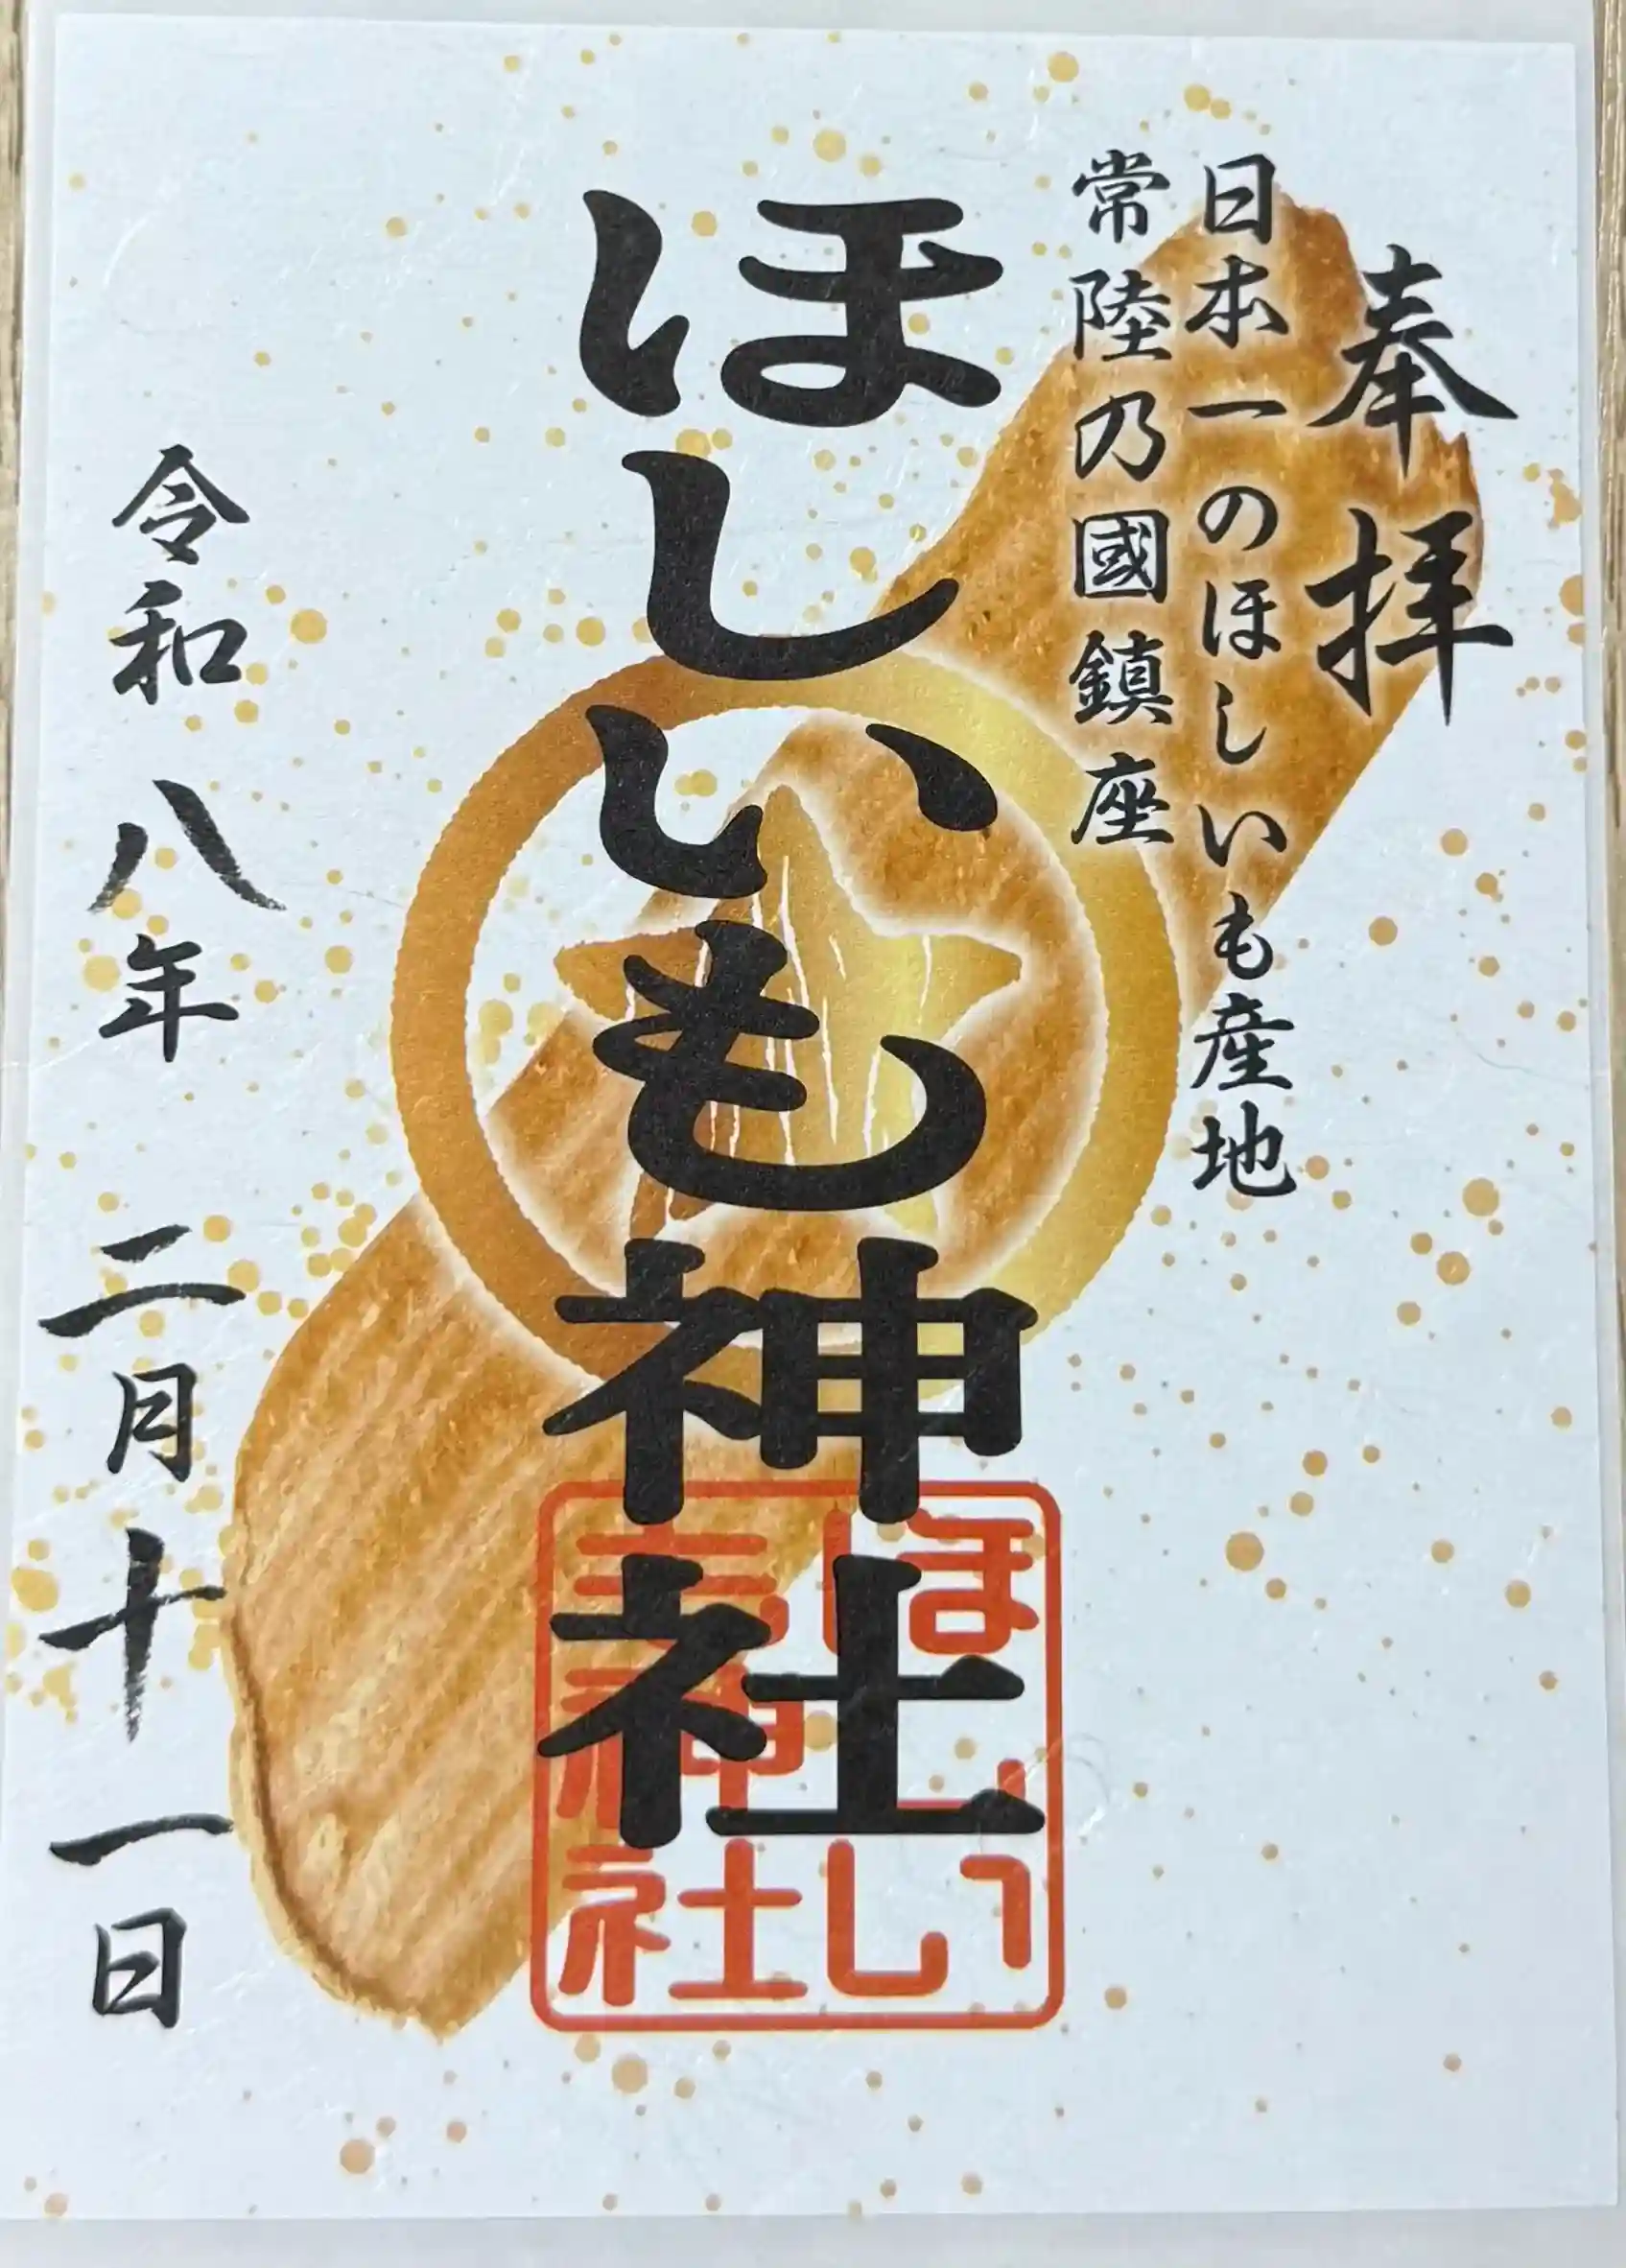 奉拝
日本一のほしいも産地
常陸乃國鎮座
ほしいも神社
令和八年二月十一日